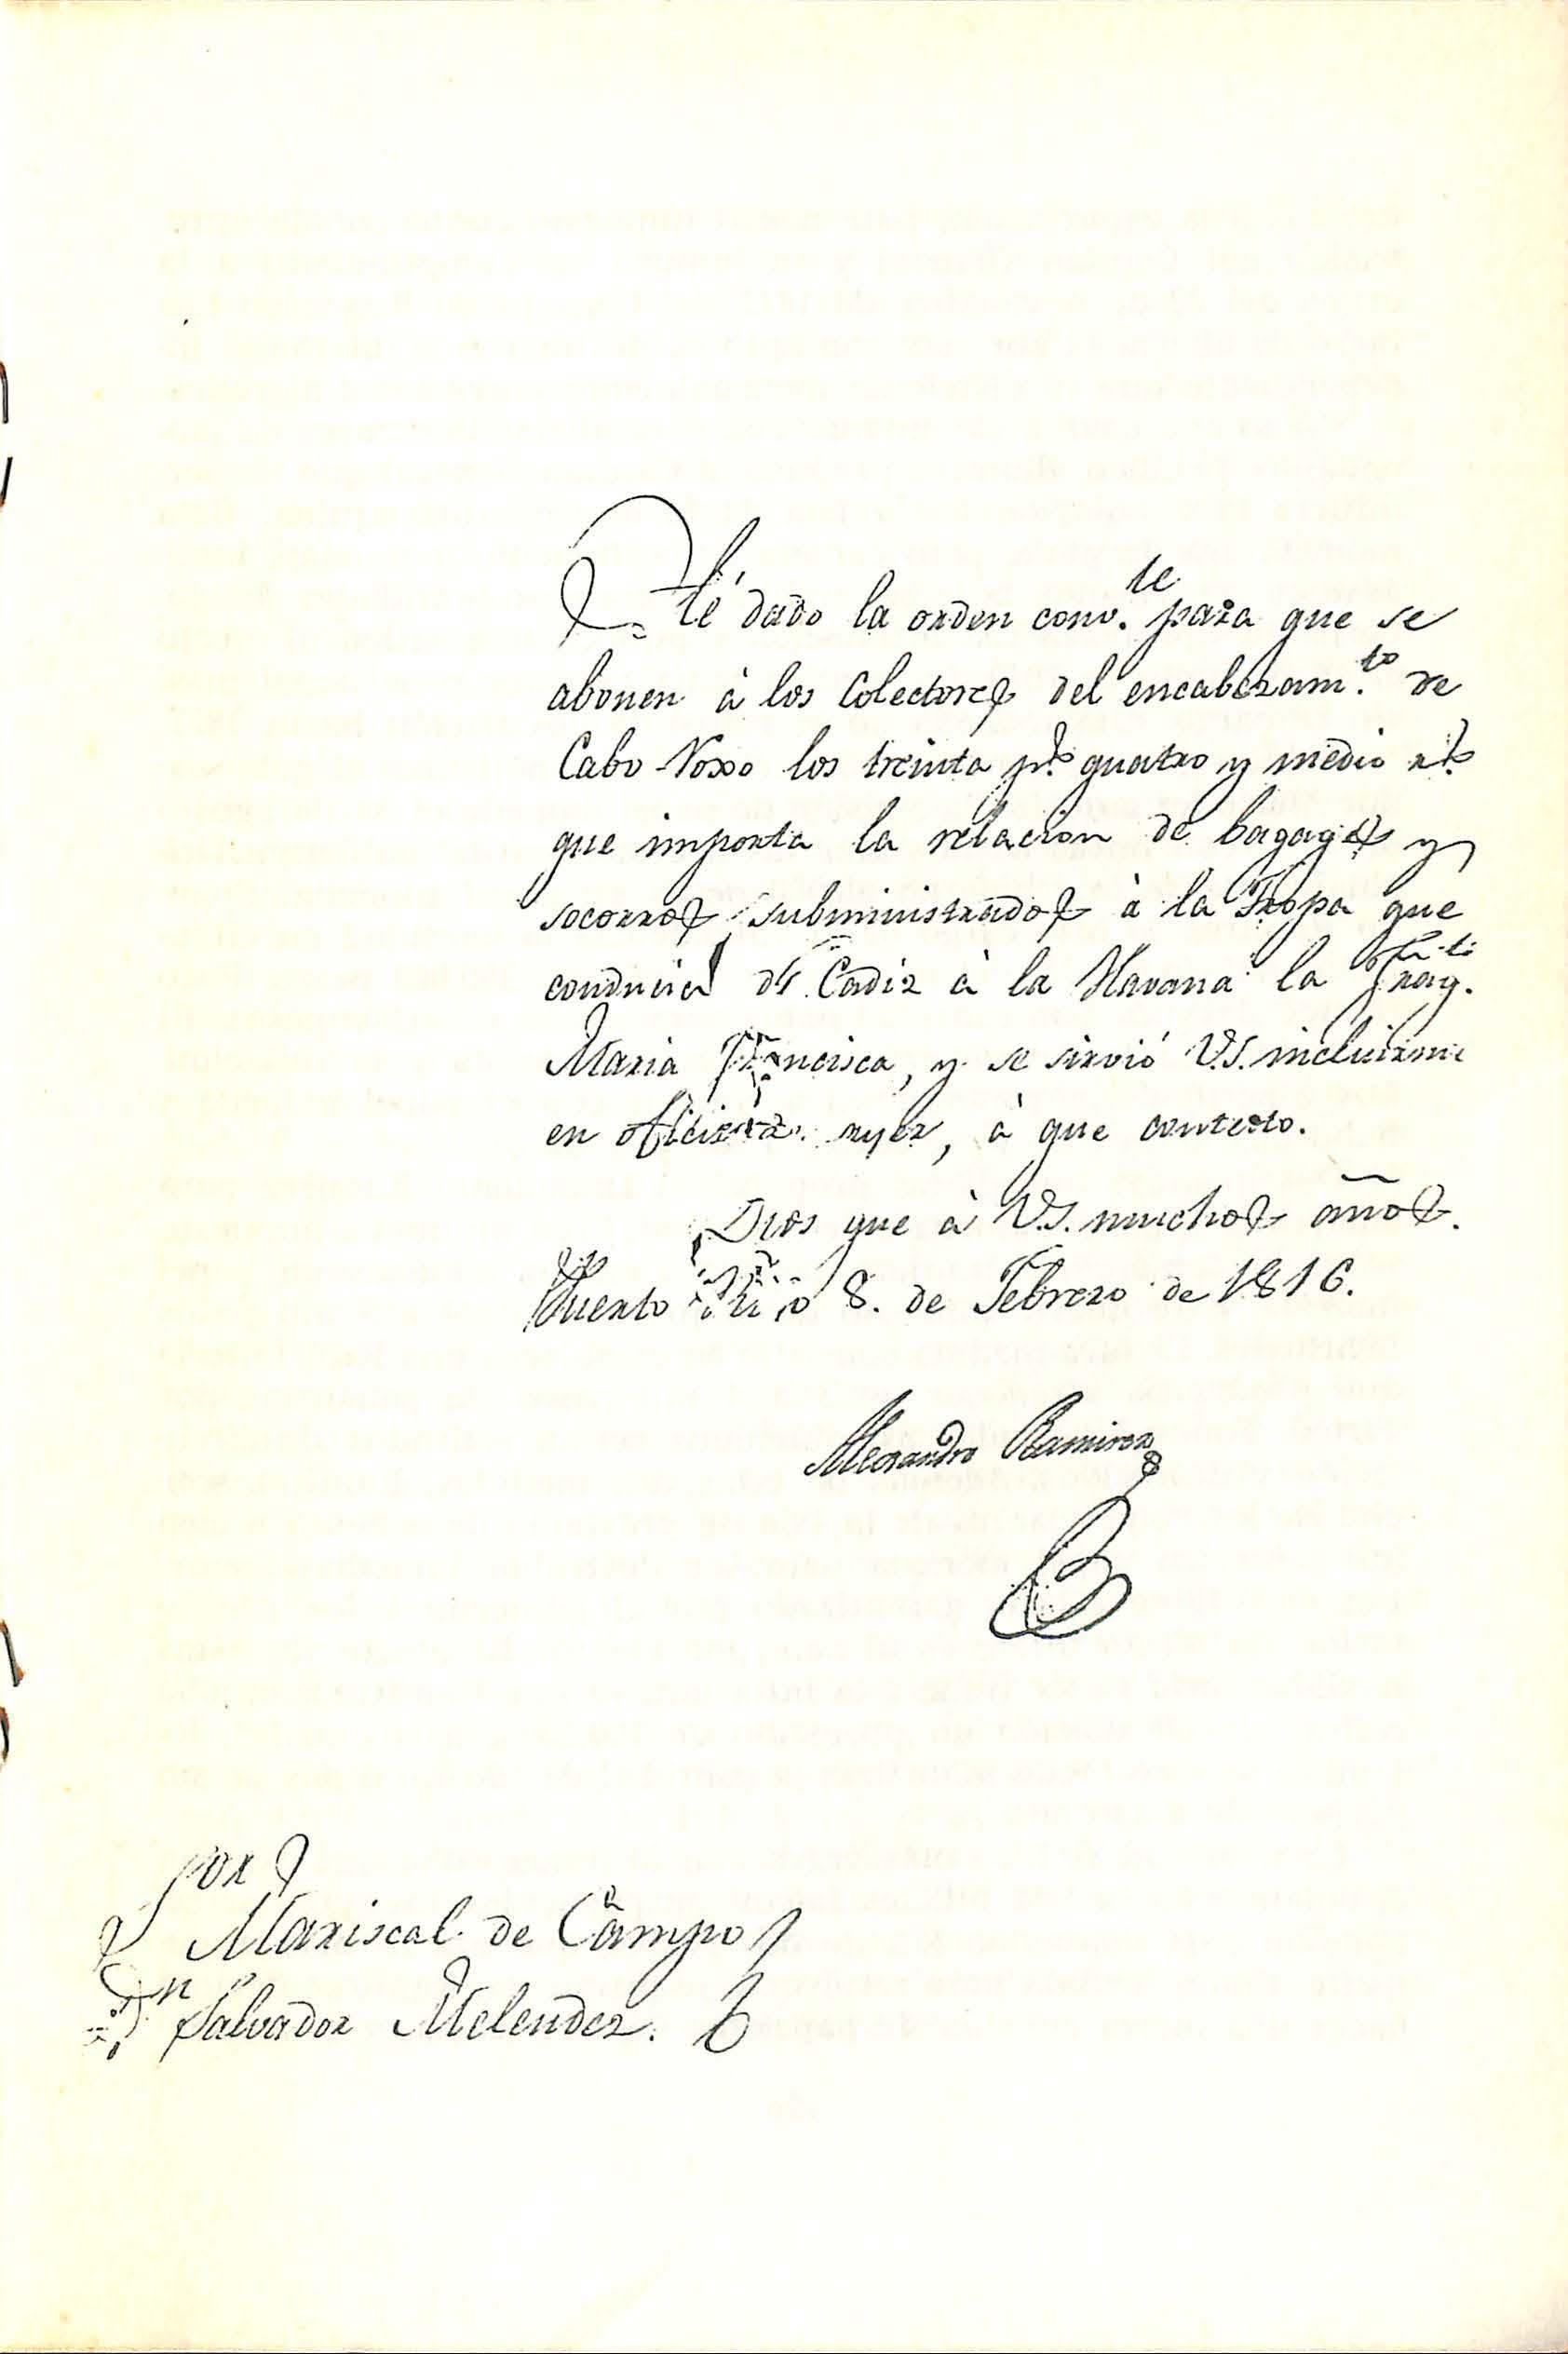 He dado la orden conv.te para que se
abonen à los Colectores del encabezam.to de
Cabo Roxo los treinta p.s quatro y medio r.s
que importa la relacion de bagages y
socorros subministrados à la Tropa que
conducia de Cadiz à la Havana la Frag.ta
Maria Francisca, y se sirvió V.S. incluirme
en oficio de ayer, à que contexto.
Dios gue à V.S. muchos años.
Puerto Rico 8. de Febrero de 1816.
Alexandro Ramirez
Sor
Mariscal de Campo
Dn Salvador Melendez.